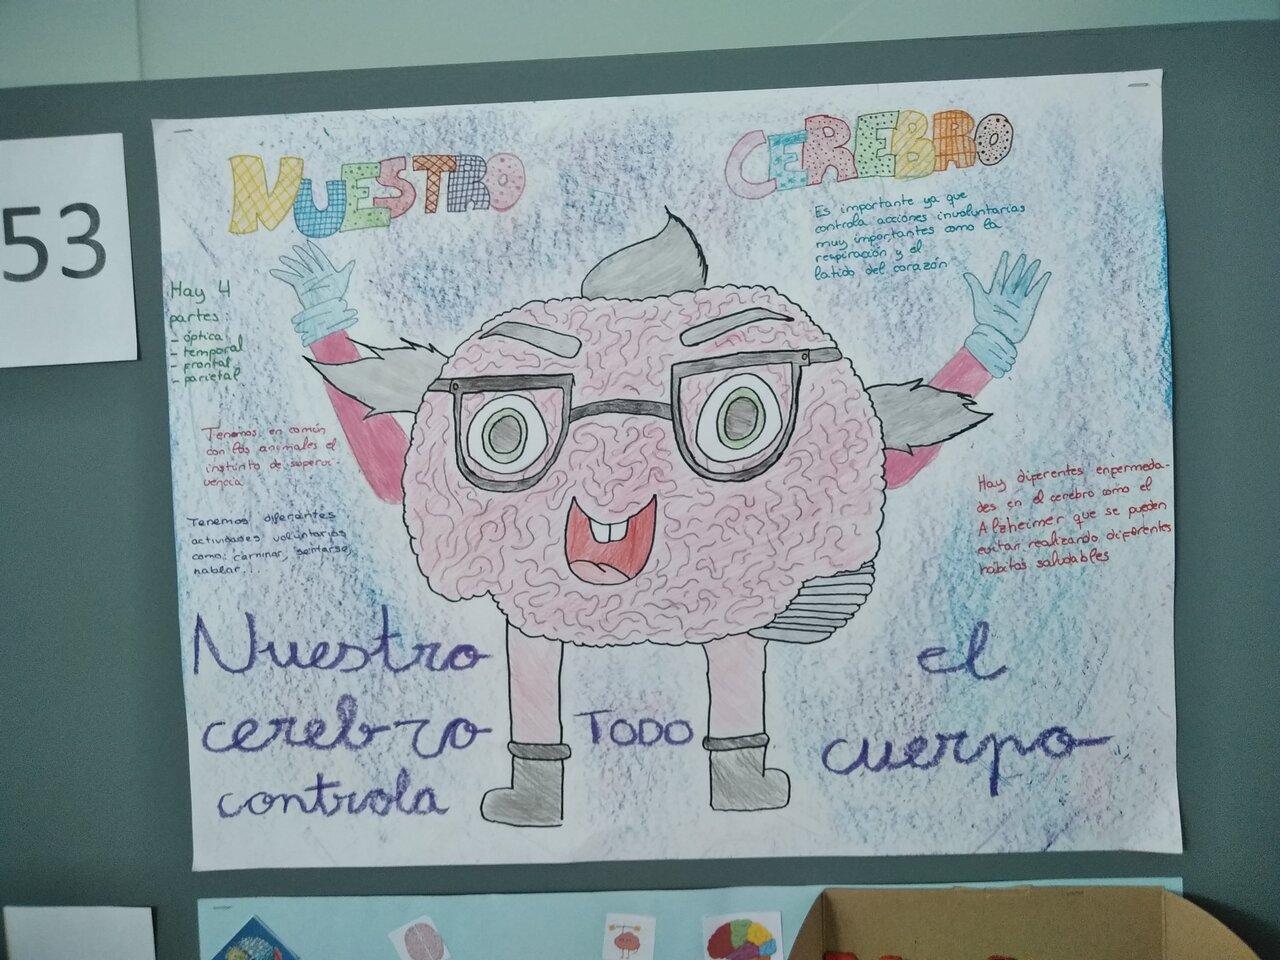 53
NUESTRO CEREBRO
Es importante ya que
controla acciones involuntarias
muy importantes como la
respiración y el
latido del corazón
Hay 4
partes:
- óptica
- temporal
- frontal
- parietal
Tenemos en común
con los animales el
instinto de supervi-
vencia
Tenemos diferentes
actividades voluntarias
como: caminar, sentarse,
hablar...
Hay diferentes enfermeda-
des en el cerebro como el
Alzheimer que se pueden
evitar realizando diferentes
habitos saludables
Nuestro
cerebro
controla
TODO
el
cuerpo